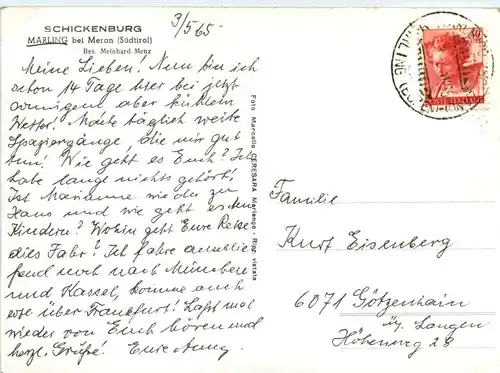 SCHICKENBURG
MARLING bei Meran (Südtirol)
Bes. Meinhard Menz
3/5 65
Meine Lieben! Nun bin ich
schon 14 Tage hier bei jetzt
sonnigem aber kühlem
Wetter. Mache täglich weite
Spaziergänge, die mir gut
tun! Wie geht es Euch? Ich
habe lange nichts gehört,
Ist Marianne wieder zu
Haus und wie geht es den
Kindern? Wohin geht Eure Reise
dies Jahr? Ich fahre anschlie-
ßend noch nach Nürnberg
und Kassel, komme auch
über Frankfurt! Laßt mal
wieder von Euch hören und
herzl. Grüße! Eure
Foto Marcello CERESARA Marlengo - Ripr. vietata
POSTE ITALIANE
Familie
Kurt Eisenberg
6071 Götzenhain
ü/ Langen
Höhenweg 28